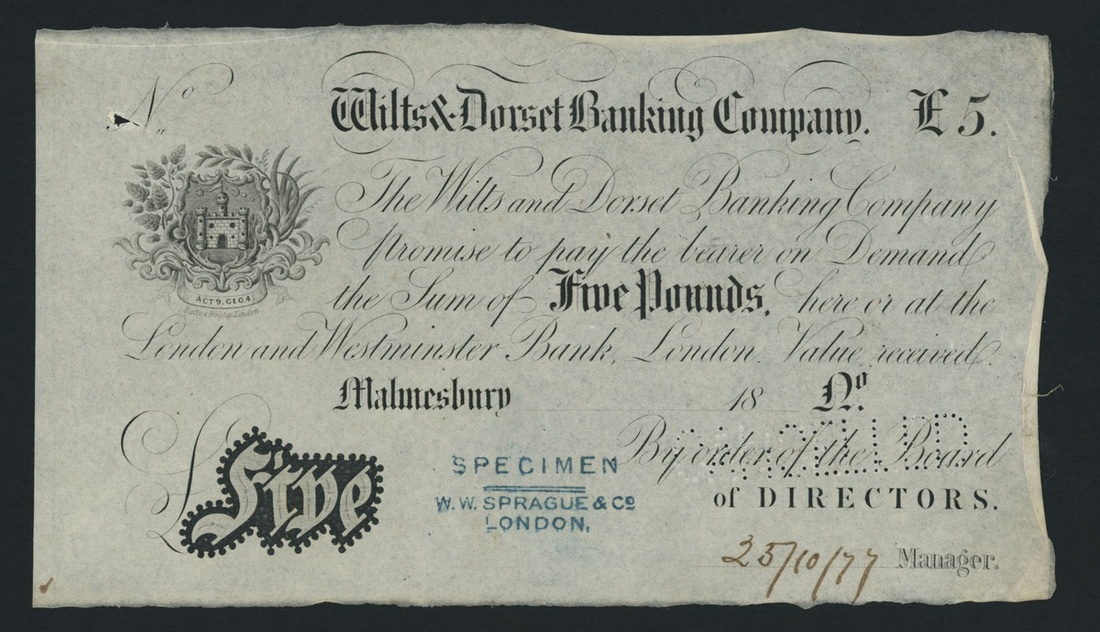 No
Wilts & Dorset Banking Company. £5.
The Wilts and Dorset Banking Company
promise to pay the bearer on Demand
the Sum of Five Pounds, here or at the
London and Westminster Bank, London. Value received.
ACT 9. GEO. 4
Malmesbury 18 No.
By order of the Board
of DIRECTORS.
£ Five
SPECIMEN
W. W. SPRAGUE & Co
LONDON.
25/10/77 Manager.